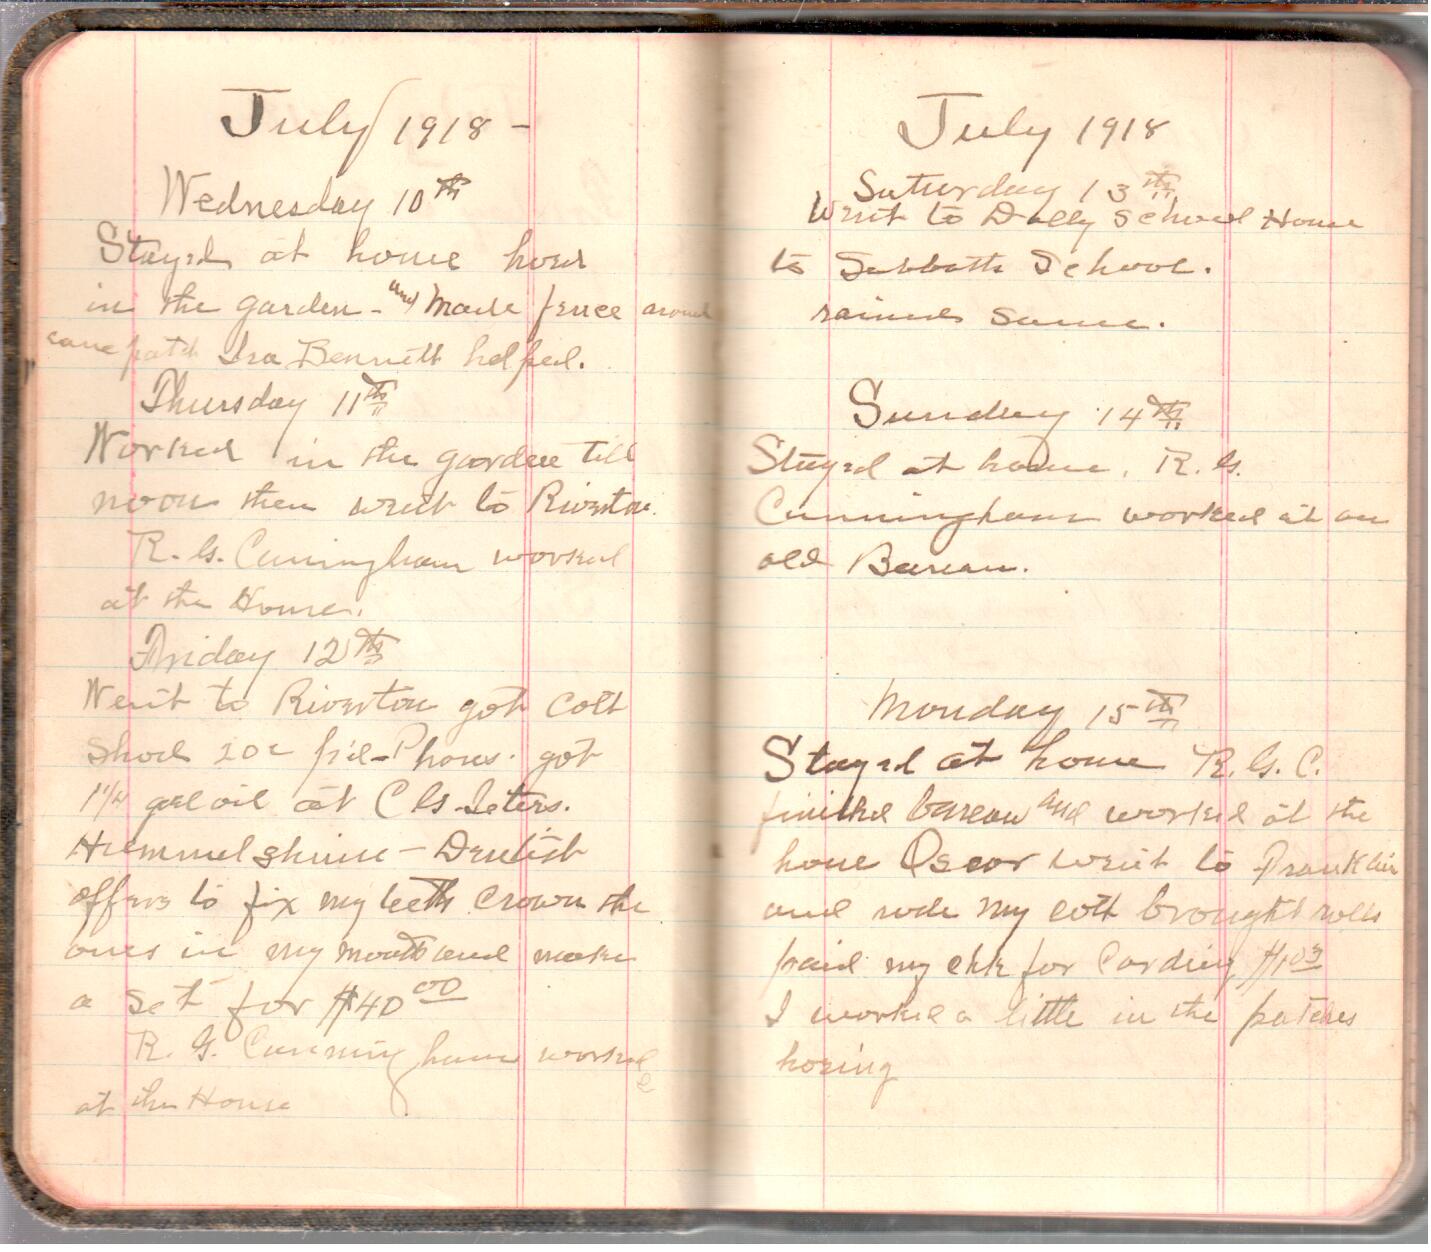 July 1918 -
Wednesday 10th
Stayed at home hoed
in the garden - and made fence around
cane patch Ira Bennett helped.
Thursday 11th
Worked in the garden till
noon then went to Riverton.
R. G. Cunningham worked
at the House.
Friday 12th
Went to Riverton got colt
shod 20c p'd - Phares. got
1 1/4 gal oil at C G
Hummelshime - Dentist
offers to fix my teeth crown the
ones in my mouth and make
a set for $40 00
R. G. Cunningham worked
at the House
July 1918
Saturday 13th
Went to Dolly School House
to Sabbath School.
rained some.
Sunday 14th
Stayed at home. R. G.
Cunningham worked at an
old Bureau.
Monday 15th
Stayed at home R. G. C.
finished bureau and worked at the
house Oscar went to Franklin
and rode my colt brought rolls
paid my chk for Carding $1 03
I worked a little in the patches
hoeing